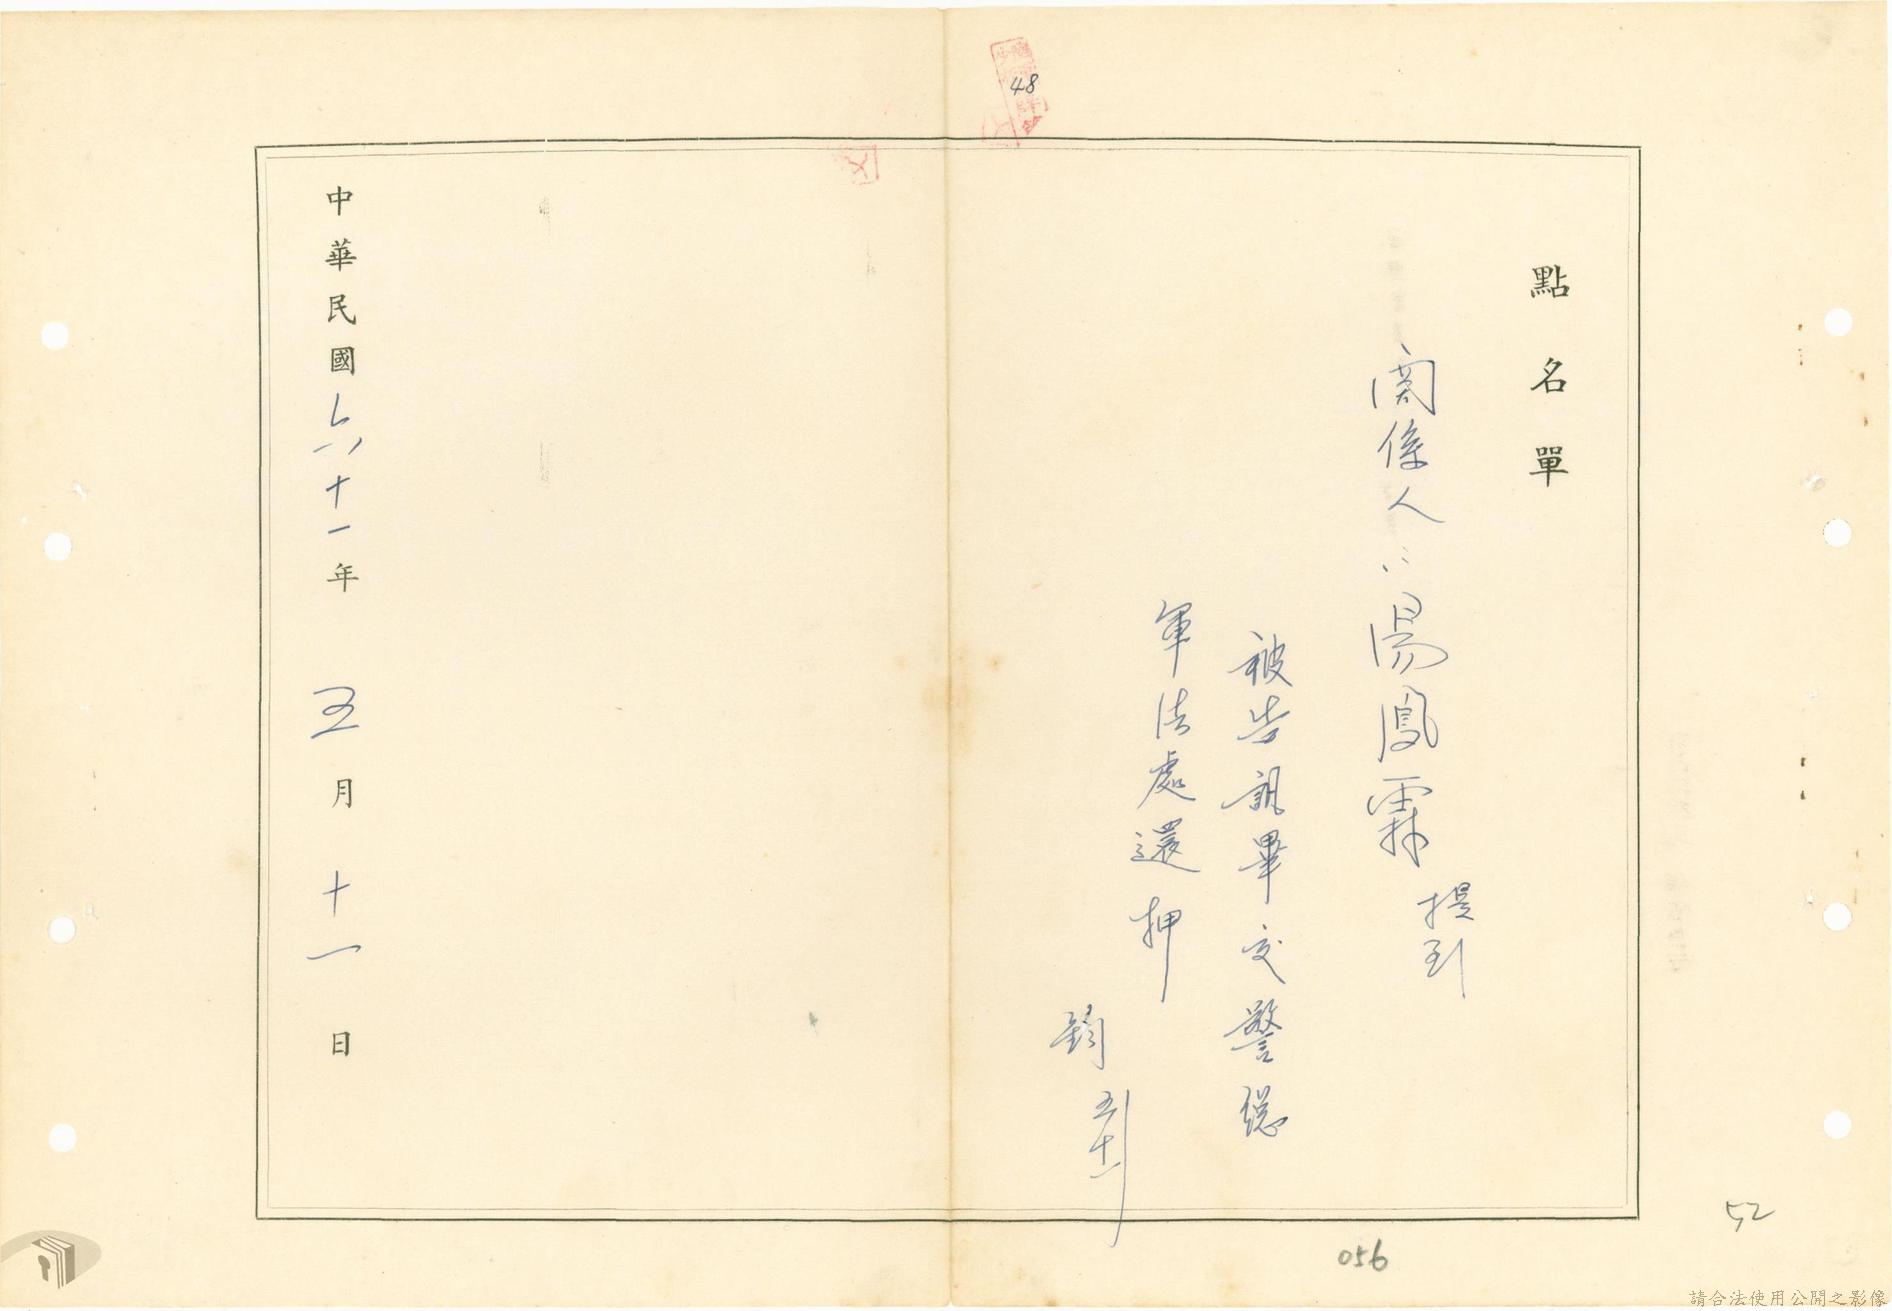 48
點名單
關係人：湯鳳霖 提到
被告訊畢交警總
軍法處還押
鈞 五十一
中華民國六十一年 五月十一日
056
52
請合法使用公開之影像